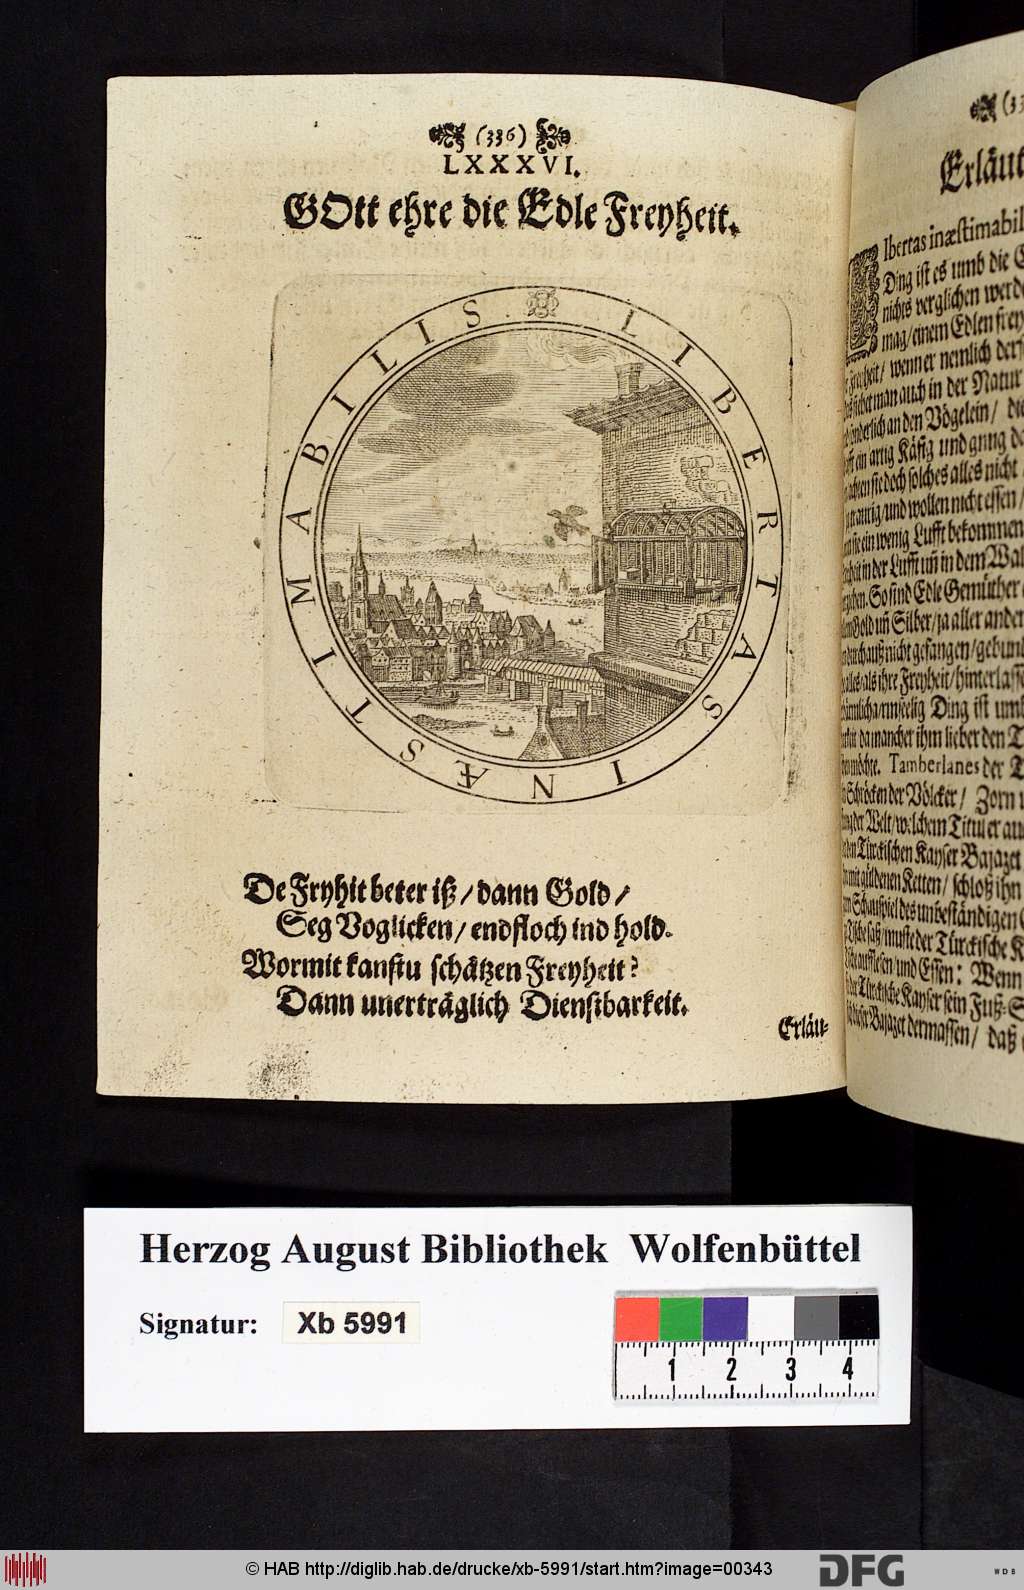 (336)
LXXXVI.
GOtt ehre die Edle Freyheit.
LIBERTAS INÆSTIMABILIS.
De Fryhit beter iß / dann Gold /
Seg Voglicken / endfloch ind hold.
Wormit kanstu schätzen Freyheit?
Dann unerträglich Dienstbarkeit.
Erläu-
(33
Erläut
Ibertas inæstimabil
Ding ist es umb die
nichts verglichen werde
mag / einem Edlen frey
Freyheit / wenn er nemlich derf
siehet man auch in der Natur
sonderlich an den Vögelein / die
ein artig Käfig und gnug
achten sie doch solches alles nicht
traurig / und wollen nicht essen /
sie ein wenig Lufft bekommen
in der Lufft uñ in dem Wal
So sind Edle Gemüther
Gold uñ Silber / ja aller ander
durchauß nicht gefangen / gebun
alles / als ihre Freyheit / hinterlasse
armseelig Ding ist umb
da mancher ihm lieber den T
möchte. Tamberlanes der T
Schröcken der Völcker / Zorn
der Welt / welchem Titul er au
den Türckischen Kayser Bajazet
mit güldenen Ketten / schloß ihn
Schauspiel des unbeständigen
Tische saß / muste der Türckische K
aufflesen / und Essen: Wenn
der Türckische Kayser sein Fuß-S
dieser Bajazet dermassen / daß
Herzog August Bibliothek Wolfenbüttel
Signatur: Xb 5991
1 2 3 4
© HAB http://diglib.hab.de/drucke/xb-5991/start.htm?image=00343
DFG
WDB